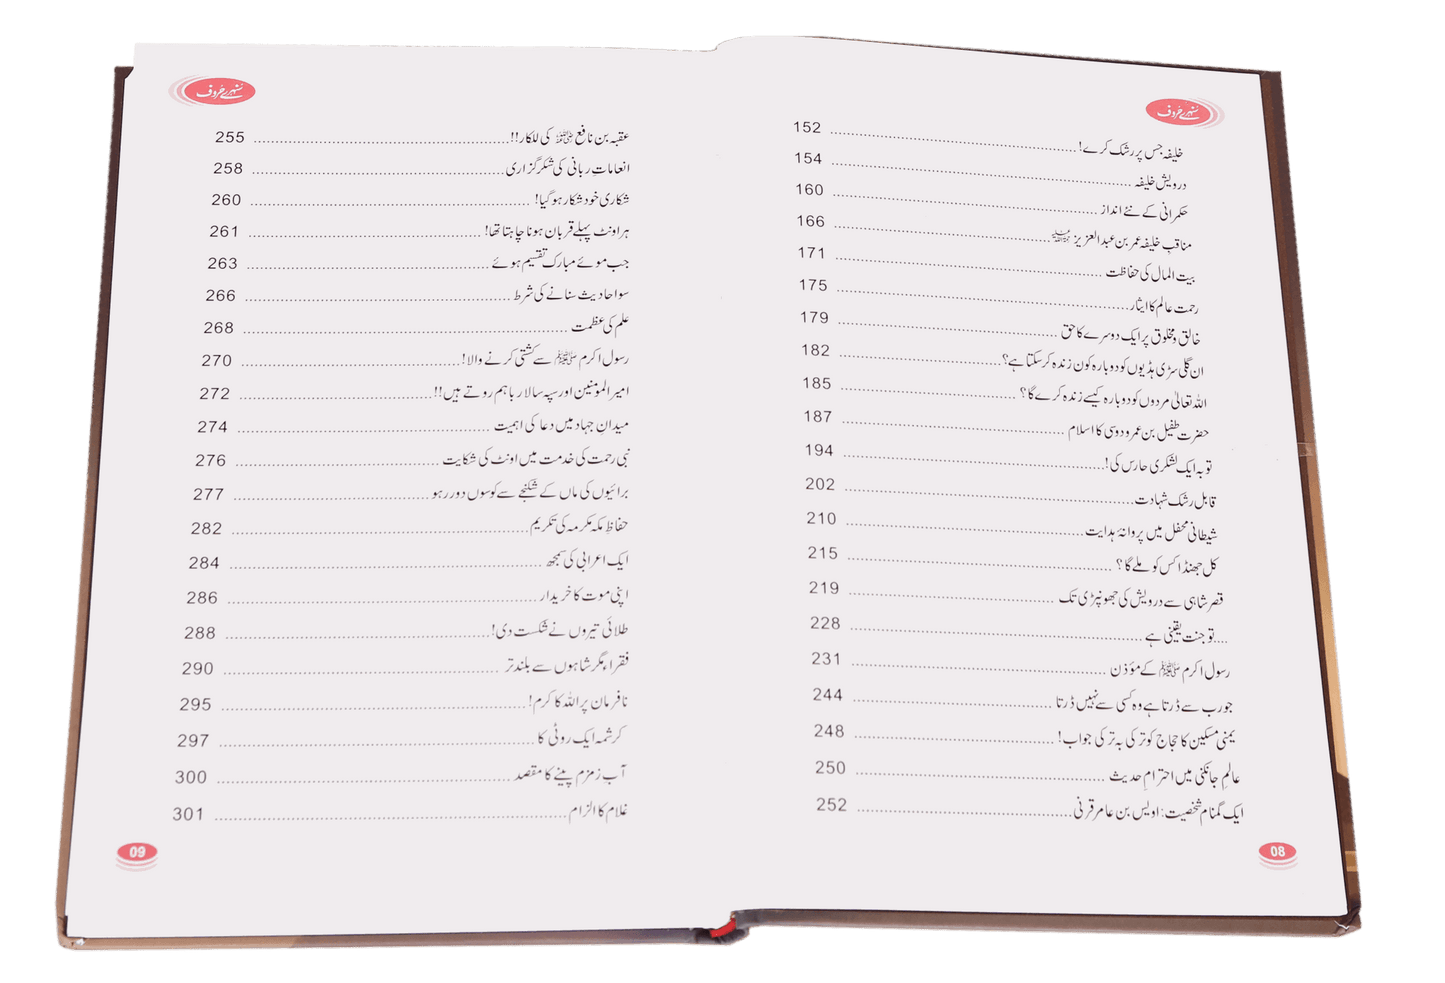 سنہرے حُروف
خلیفہ جس پر رشک کرے! 152
درویش خلیفہ 154
حکمرانی کے نئے انداز 160
مناقبِ خلیفہ عمر بن عبدالعزیز رحمہ اللہ 166
بیت المال کی حفاظت 171
رحمت عالم کا ایثار 175
خالق و مخلوق پر ایک دوسرے کا حق 179
ان گلی سڑی ہڈیوں کو دوبارہ کون زندہ کرسکتا ہے؟ 182
اللہ تعالیٰ مردوں کو دوبارہ کیسے زندہ کرے گا؟ 185
حضرت طفیل بن عمرو دوسی کا اسلام 187
توبہ ایک لشکری حارس کی! 194
قابل رشک شہادت 202
شیطانی محفل میں پروانۂ ہدایت 210
کل جھنڈا کس کو ملے گا؟ 215
قصر شاہی سے درویش کی جھونپڑی تک 219
....تو جنت یقینی ہے 228
رسول اکرم ﷺ کے مؤذن 231
جو رب سے ڈرتا ہے وہ کسی سے نہیں ڈرتا 244
یمنی مسکین کا حجاج کو ترکی بہ ترکی جواب! 248
عالمِ جانکنی میں احترامِ حدیث 250
ایک گمنام شخصیت: اویس بن عامر قرنی 252
08
سنہرے حُروف
عقبہ بن نافع ﷺ کی للکار!! 255
انعاماتِ ربانی کی شکرگزاری 258
شکاری خود شکار ہوگیا! 260
ہر اونٹ پہلے قربان ہونا چاہتا تھا! 261
جب موئے مبارک تقسیم ہوئے 263
سو احادیث سنانے کی شرط 266
علم کی عظمت 268
رسول اکرم ﷺ سے کشتی کرنے والا! 270
امیر المؤمنین اور سپہ سالار باہم روتے ہیں!! 272
میدان جہاد میں دعا کی اہمیت 274
نبی رحمت کی خدمت میں اونٹ کی شکایت 276
برائیوں کی ماں کے شکنجے سے کوسوں دور رہو 277
حفاظِ مکہ مکرمہ کی تکریم 282
ایک اعرابی کی سمجھ 284
اپنی موت کا خریدار 286
طلائی تیروں نے شکست دی! 288
فقراء مگر شاہوں سے بلند تر 290
نافرمان پر اللہ کا کرم! 295
کرشمہ ایک روٹی کا 297
آب زمزم پینے کا مقصد 300
غلام کا الزام 301
09